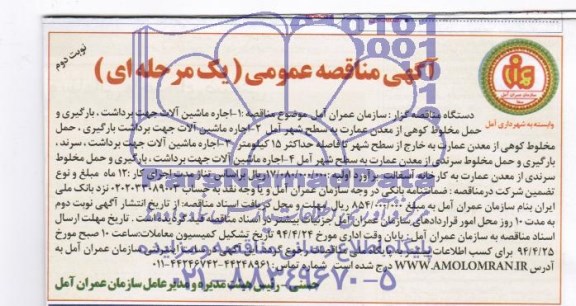 نوبت دوم
آگهی مناقصه عمومی ( یک مرحله ای )
وابسته به شهرداری آمل
دستگاه مناقصه گزار : سازمان عمران آمل موضوع مناقصه :۱-اجاره ماشین آلات جهت برداشت ، بارگیری و
حمل مخلوط کوهی از معدن عمارت به سطح شهر آمل ۲-اجاره ماشین آلات جهت برداشت بارگیری ، حمل
مخلوط کوهی از معدن عمارت به خارج از سطح شهر تا فاصله حداکثر ۱۵ کیلومتر ۳-اجاره ماشین آلات جهت برداشت ، سرند،
بارگیری و حمل مخلوط سرندی از معدن عمارت به سطح شهر آمل ۴-اجاره ماشین آلات جهت برداشت ، بارگیری و حمل مخلوط
سرندی از معدن عمارت به کارخانه آسفالت برآورد اولیه: ریال براساس مدت اجرای کار :۱۲ ماه مبلغ و نوع
تضمین شرکت درمناقصه : ضمانتنامه بانکی در وجه سازمان عمران آمل و یا وجه نقد به حساب نزد بانک ملی
ایران بنام سازمان عمران آمل به مبلغ ریال مهلت و محل دریافت اسناد مناقصه: از تاریخ انتشار آگهی نوبت دوم
به مدت ۱۰ روز محل امور قراردادهای سازمان عمران آمل جزئیات بیشتر در اسناد مناقصه قید گردیده است. مهلت ارسال
اسناد مناقصه به سازمان عمران آمل: پایان وقت اداری مورخ ۹۴/۴/۲۴ تاریخ تشکیل کمیسیون معاملات:ساعت ۱۰ صبح مورخ
۹۴/۴/۲۵ برای کسب اطلاعات سازمان عمران آمل به
آدرس WWW.AMOLOMRAN.IR درج شده است. شماره تماس: ۴۴۲۴۸۹۶۱-۴۴۲۴۶۷۴۲-۰۱۱
حسنی - رئیس هیئت مدیره و مدیرعامل سازمان عمران آمل
پایگاه اطلاع رسانی مناقصه و مزایده
۰۲۱-۸۸۳۴۹۶۷۰-۵